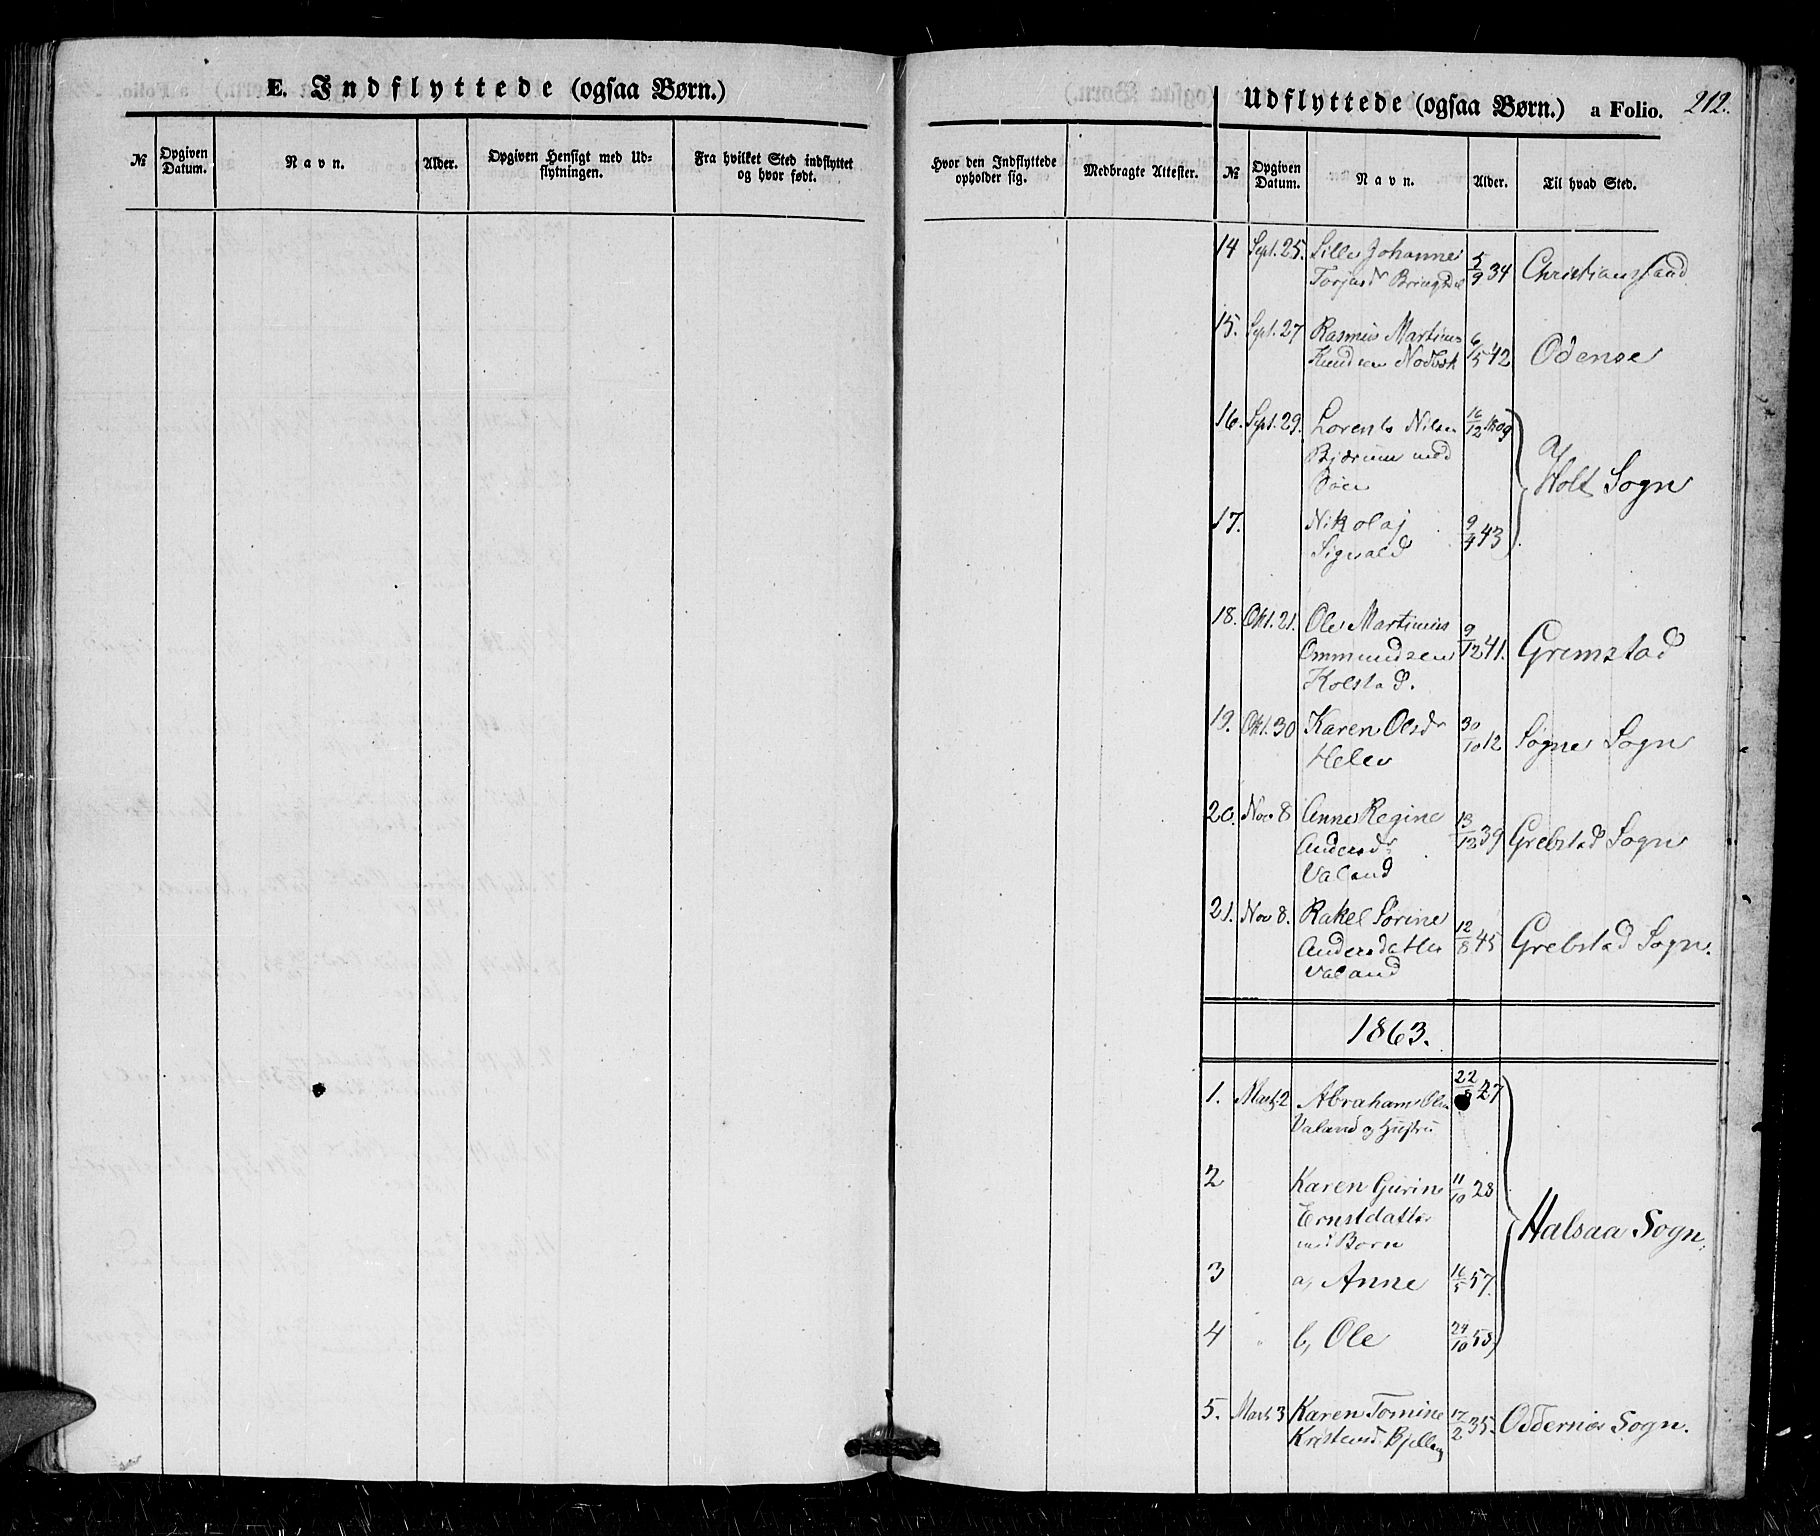 E. Indflyttede (ogsaa Børn.)
№
Opgiven Datum.
Navn.
Alder.
Opgiven Hensigt med Ud-
flytningen.
Fra hvilket Sted indflyttet
og hvor født.
Hvor den Indflyttede
opholder sig.
Medbragte Attester.
Udflyttede (ogsaa Børn.) a Folio. 212.
№
Opgiven Datum.
Navn.
Alder.
Til hvad Sted.
14 Sept. 25. Sille Johanne 5/9 34 Christianssand
Torjusdr
15. Sept. 27 Rasmus Martinus 6/5 42 Odense
Knudsen
16. Sept. 29. Lorents Nilsen 16/12 1809
Bjærum med
Holt Sogn
17. Nikolaj 9/4 43
Sigvald
18. Okt. 21. Ole Martinius 9/12 41. Grimstad
Ommundsen
Kolstad.
19. Okt. 30 Karen Olsdr 30/10 12 Søgne Sogn
Helle
20. Nov 8 Anne Regine 13/12 39 Grebstad Sogn
Andersdr
Valand
21. Nov 8. Rakel Sørine 12/8 45 Grebstad Sogn.
Andersdatter
Valand
1863.
1. Marts 2 Abraham Olsen 22/8 27
Valand og Hustru
2 Karen Gurine 11/10 28
Ernstdatter
med Børn
Halsaa Sogn.
3 a, Anne 16/5 57.
4 " b, Ole 24/10 58
5. Marts 3 Karen Tomine 17/2 35. Oddernes Sogn.
Kristensd.